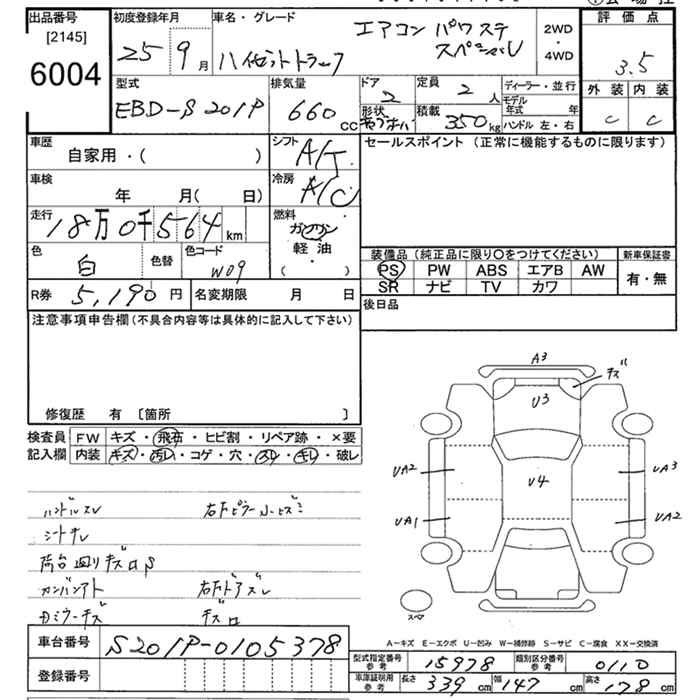 出品番号 初度登録年月 車名・グレード エアコン パワステ 評価点
[2145] スペシャル 2WD
・
6004 25 9月 ハイゼットトラック 4WD 3.5
型式 排気量 ドア 定員 ディーラー・並行 外装 内装
EBD-S201P 660cc 2 2人 モデル年式 年
形状 積載 350kg ハンドル 左・右 C C
車歴 シフト セールスポイント (正常に機能するものに限ります)
自家用・( ) A/T
車検 冷房
年 月( 日) A/C
走行 燃料
18万0千564km ガソリン
色 色替 色コード 軽油 装備品 (純正品に限り○をつけてください) 新車保証書
白 W09 ( ・ ) PS PW ABS エアB AW 有・無
R券 5,190円 名変期限 月 日 SR ナビ TV カワ
注意事項申告欄(不具合内容等は具体的に記入して下さい) 後日品
修復歴 有 〔箇所 〕
検査員 FW キズ・飛石・ヒビ割・リペア跡・×要
記入欄 内装 キズ・汚レ・コゲ・穴・スレ・キレ・破レ
A3
キズ
U3
UA2 UA3
U4
UA1 UA2
スペア
ハンドルスレ
シートキレ
荷台廻りキズロS
右ドアズレ
キズロ
A-キズ E-エクボ U-凹み W-補修跡 S-サビ C-腐食 XX-交換済
車台番号 S201P-0105378
登録番号
型式指定番号 参考 15978 類別区分番号 参考 0110
車庫証明用 参考 長さ 339cm 幅 147cm 高さ 178cm